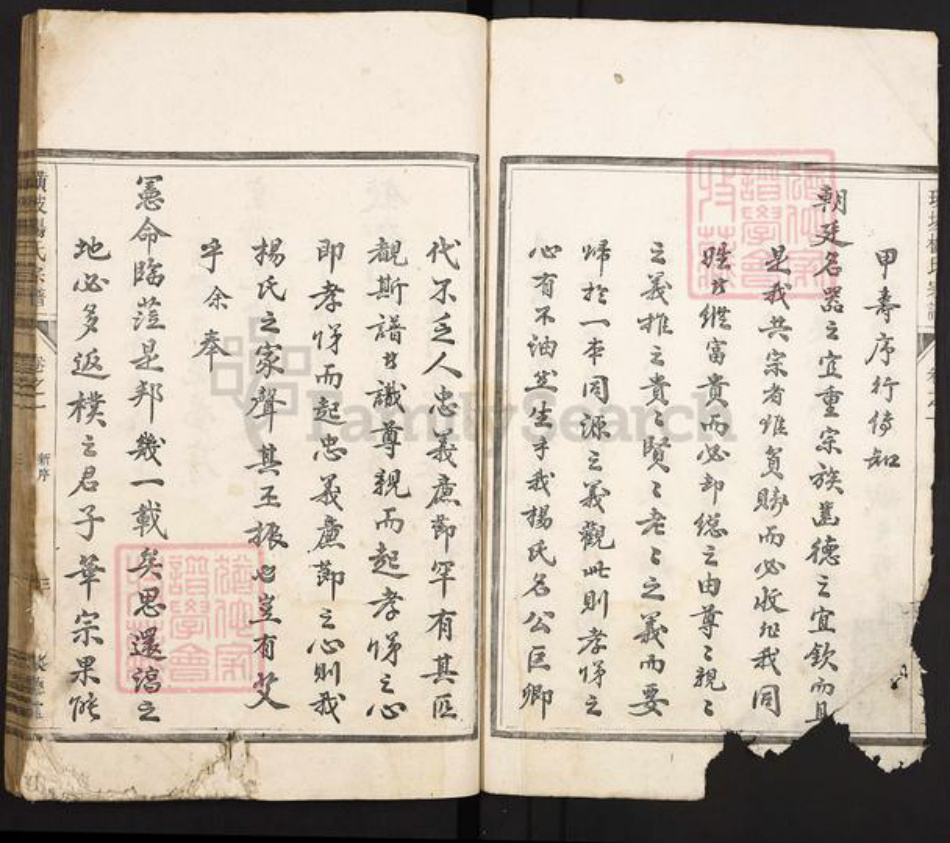 甲壽序行傳知
朝廷名器之宜重宗族齒德之宜欽而且
是我共宗者雖貧賤而必收非我同
姓者縱富貴而必却總之由尊尊親親
之義推之貴貴賢賢老老之義而要
歸於一本同源之義觀此則孝悌之
心有不油然生乎我楊氏名公巨卿
代不乏人忠義廉節罕有其匹
觀斯譜者識尊親而起孝悌之心
即孝悌而起忠義廉節之心則我
楊氏之家聲其丕振也豈有艾
乎余奉
憲命臨蒞是邦幾一載矣思還淳之
地必多返樸之君子華宗果能
楊氏宗譜
卷之一
新序
三
FamilySearch